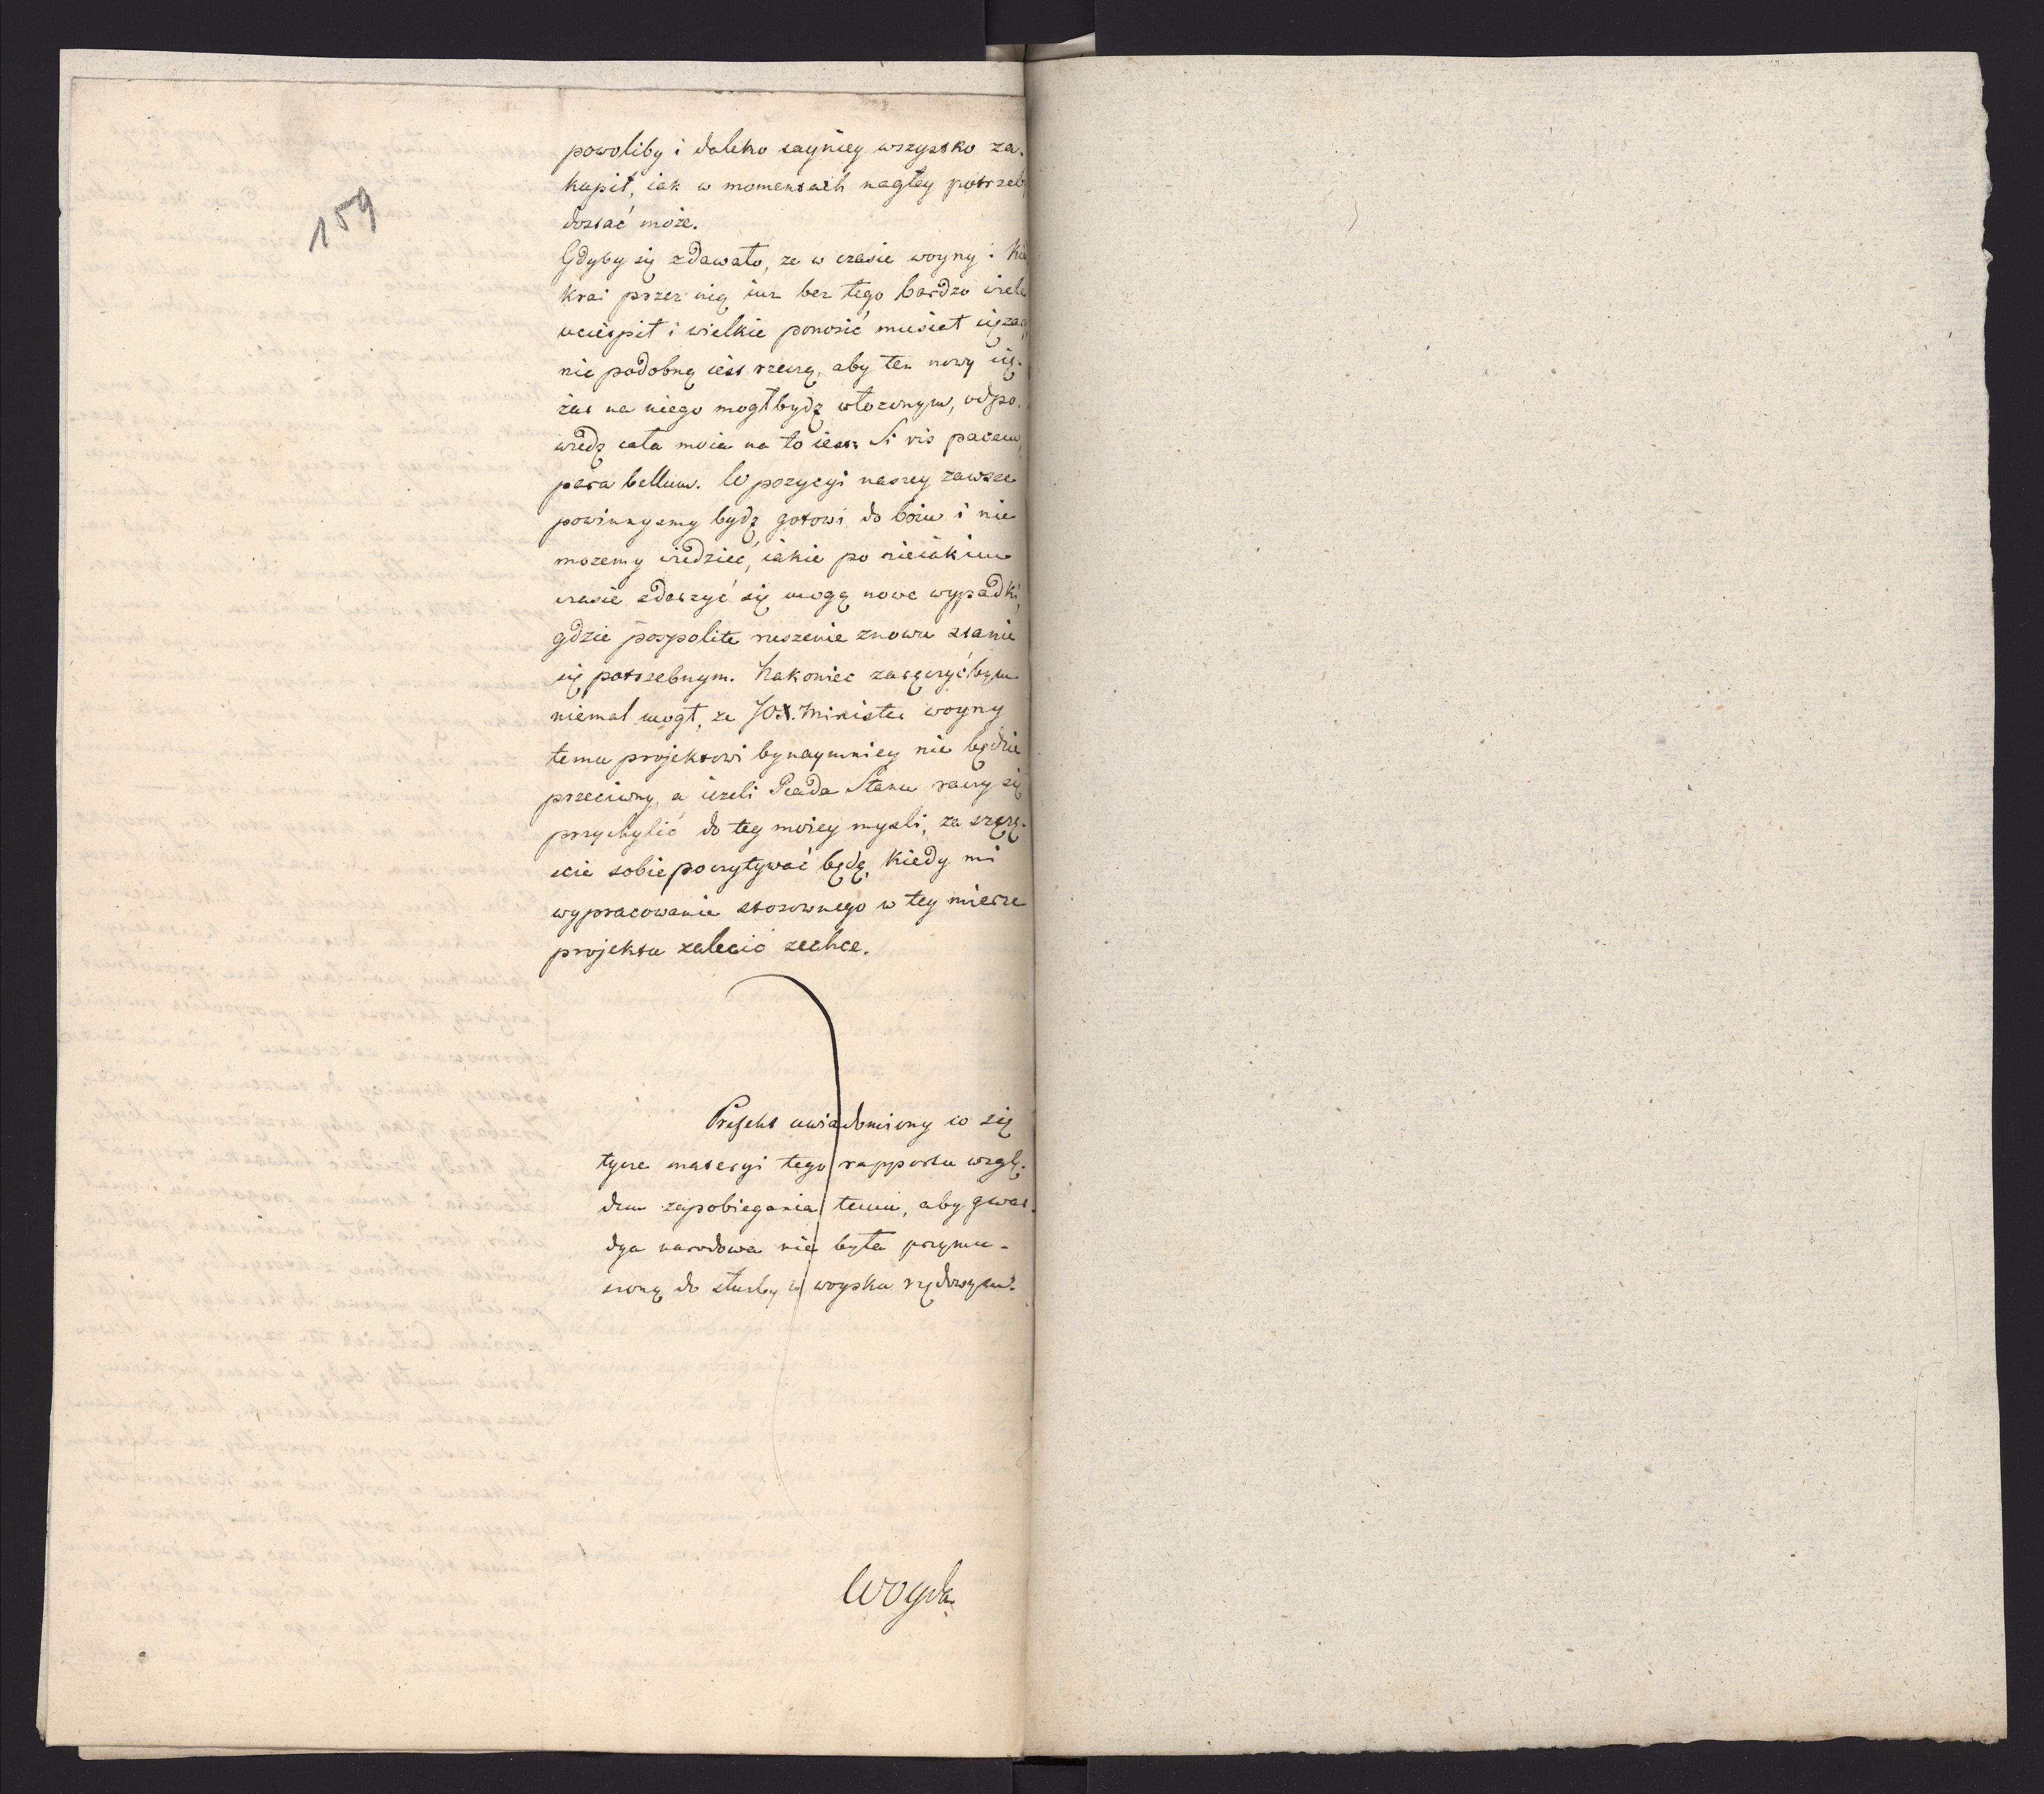 159
powoliby i daleko tayniey wszystko za-
kupił, iak w momentach nagłey potrzeb
dostać może.
Gdyby się zdawało, ze w czasie woyny i
krai przez nią iuz bez tego bardzo wiele
ucierpił i wielkie ponosić musiał cięzar
nie podobną iest rzeczą, aby ten nowy cię-
żar na niego mogł bydz włozonym, odpo-
wiedz cała moia na to iest: Si vis pacem
para bellum. W pozycyi naszey zawsze
powinnysmy bydz gotowi do boiu i nie
mozemy wiedzieć, iakie po nieiakim
czasie zdarzyć się mogą nowe wypadki,
gdzie pospolite ruszenie znowu stanie
się potrzebnym. Nakoniec zaręczyć bym
niemal mogł, ze JOX. Minister woyny
temu projektowi bynaymniey nie będzie
przeciwny, a iezeli Rada Stanu raczy się
przychylić do tey moiey mysli, za szczę-
scie sobie poczytywać będę, kiedy mi
wypracowanie stosownego w tey mierze
projektu zalecić zechce.
Prefekt uwiadomiony co się
tycze materyi tego rapportu wzglę-
dem zapobiegania temu, aby gwar-
dya narodowa nie była przymu-
szoną do służby w woysku rządowym.
Woyda